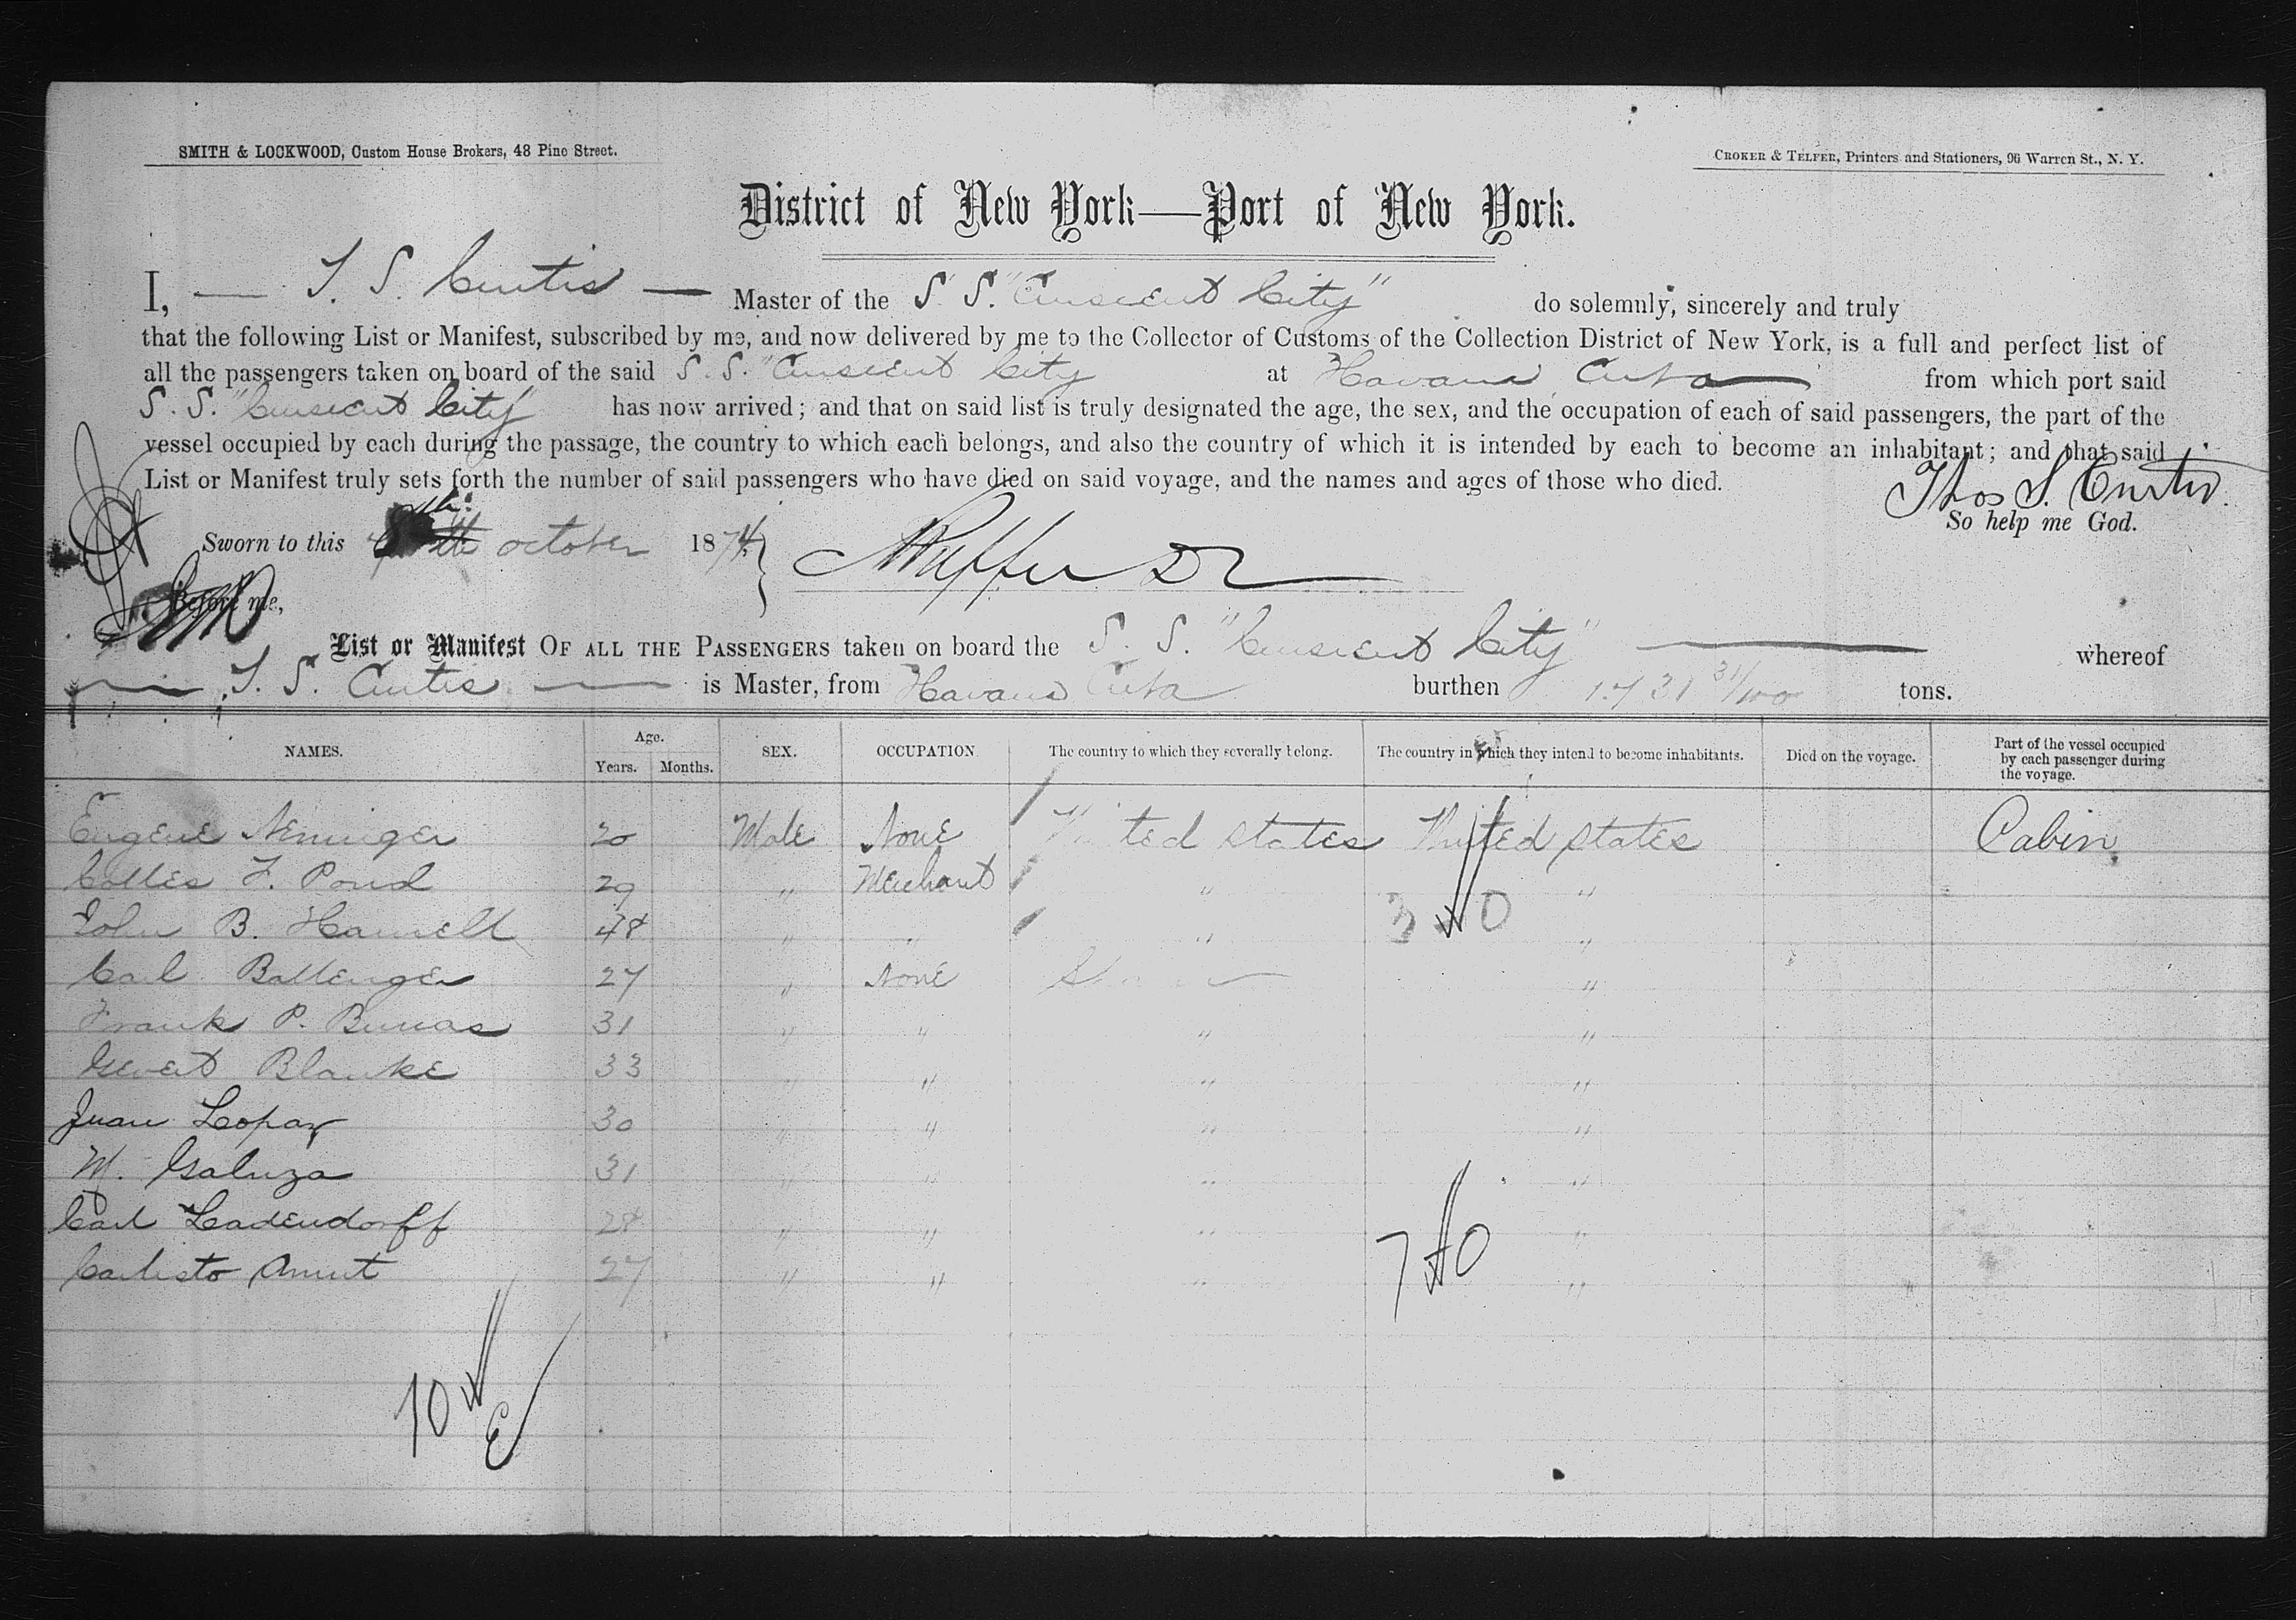 SMITH & LOCKWOOD, Custom House Brokers, 48 Pine Street.
CROKER & TELFER, Printers and Stationers, 96 Warren St., N. Y.
District of New York—Port of New York.
I, — T. S. Curtis — Master of the S. S. "Crescent City" do solemnly, sincerely and truly
that the following List or Manifest, subscribed by me, and now delivered by me to the Collector of Customs of the Collection District of New York, is a full and perfect list of
all the passengers taken on board of the said S. S. "Crescent City at Havana Cuba from which port said
S. S. "Crescent City" has now arrived; and that on said list is truly designated the age, the sex, and the occupation of each of said passengers, the part of the
vessel occupied by each during the passage, the country to which each belongs, and also the country of which it is intended by each to become an inhabitant; and that said
List or Manifest truly sets forth the number of said passengers who have died on said voyage, and the names and ages of those who died.
Thos S. Curtis
So help me God.
Sworn to this October 1874
Before me,
List or Manifest OF ALL THE PASSENGERS taken on board the S. S. "Crescent City" whereof
T. S. Curtis — is Master, from Havana Cuba burthen tons.
NAMES. Age. Years. Months. SEX. OCCUPATION. The country to which they severally belong. The country in which they intend to become inhabitants. Died on the voyage. Part of the vessel occupied by each passenger during the voyage.
Eugene Neninger 20 Male None United States United States Cabin
F. Pond 29 " Merchant " "
John B. 48 " " " "
Carl Ballenger 27 " None "
Frank P. 31 " " " "
Blanke 33 " " " "
Juan 30 " " " "
M. Galuza 31 " " " "
Carl Ladendorff 28 " " " "
27 " " " "
10